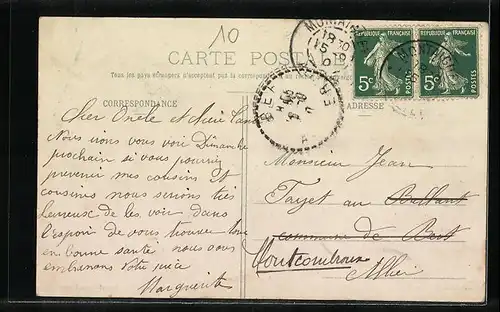 10
CARTE POSTALE
Tous les pays étrangers n'acceptent pas la correspondance
CORRESPONDANCE
ADRESSE
RÉPUBLIQUE FRANÇAISE
RÉPUBLIQUE FRANÇAISE
5c POSTES
5c POSTES
Cher Oncle et chère Tante
Nous irons vous voir Dimanche
prochain si vous pourriez
prevenir mes cousins et
cousines nous serions très
heureux de les voir dans
l'espoir de vous trouver tous
en bonne santé nous vous
embrassons votre nièce
Marguerite
Monsieur Jean
Tayet au
commune de Bert
Montcombroux
Allier